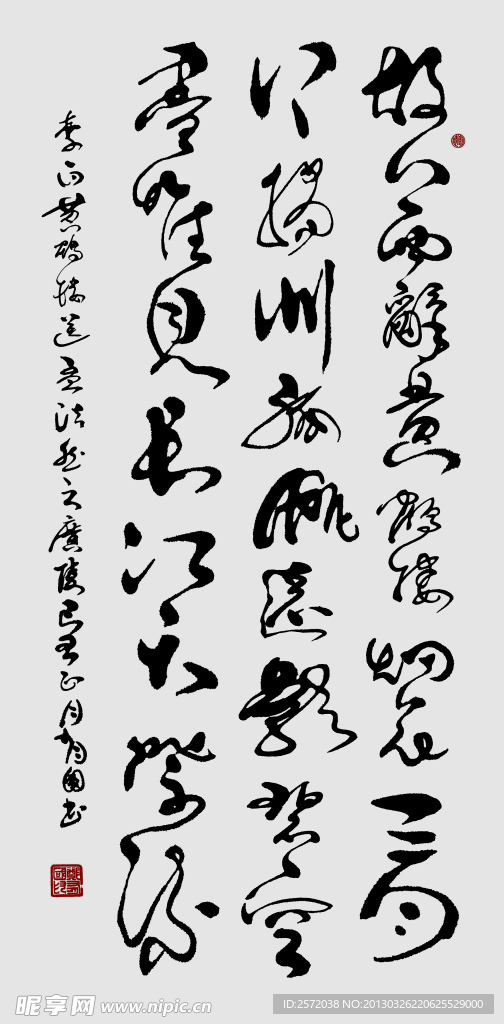 故人西辭黄鶴樓烟花三月
下揚州孤帆遠影碧空
盡唯見長江天際流
李白黄鶴樓送孟浩然之廣陵己丑正月國書
昵享网 www.nipic.cn
ID:2572038 NO:20130326220625529000